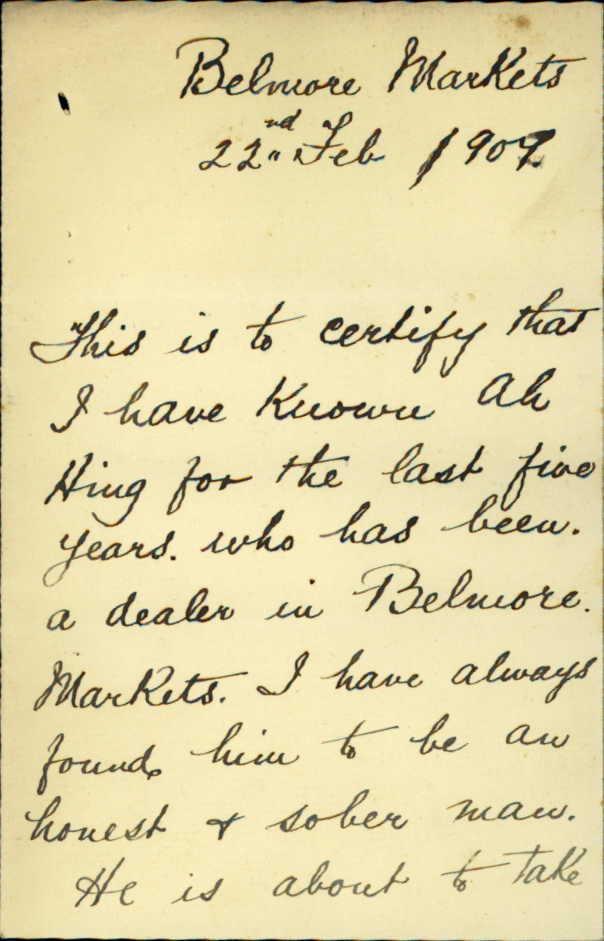 Belmore Markets
22nd Feb 1909
This is to certify that
I have Known Ah
Hing for the last five
years. who has been.
a dealer in Belmore.
Markets. I have always
found him to be an
honest & sober man.
He is about to take